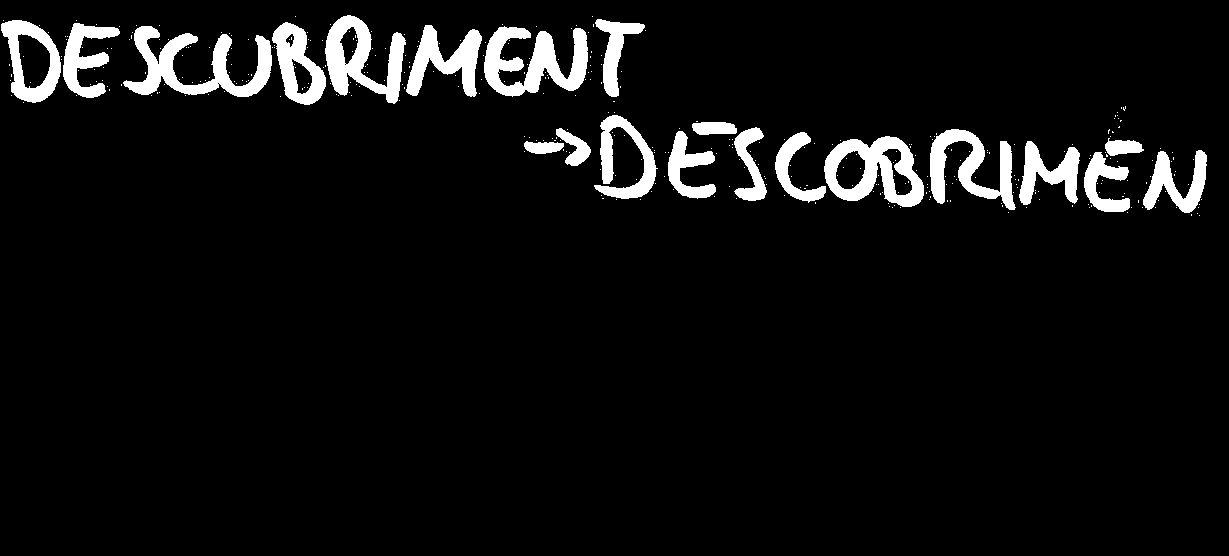 DESCUBRIMENT
→DESCOBRIMÉN